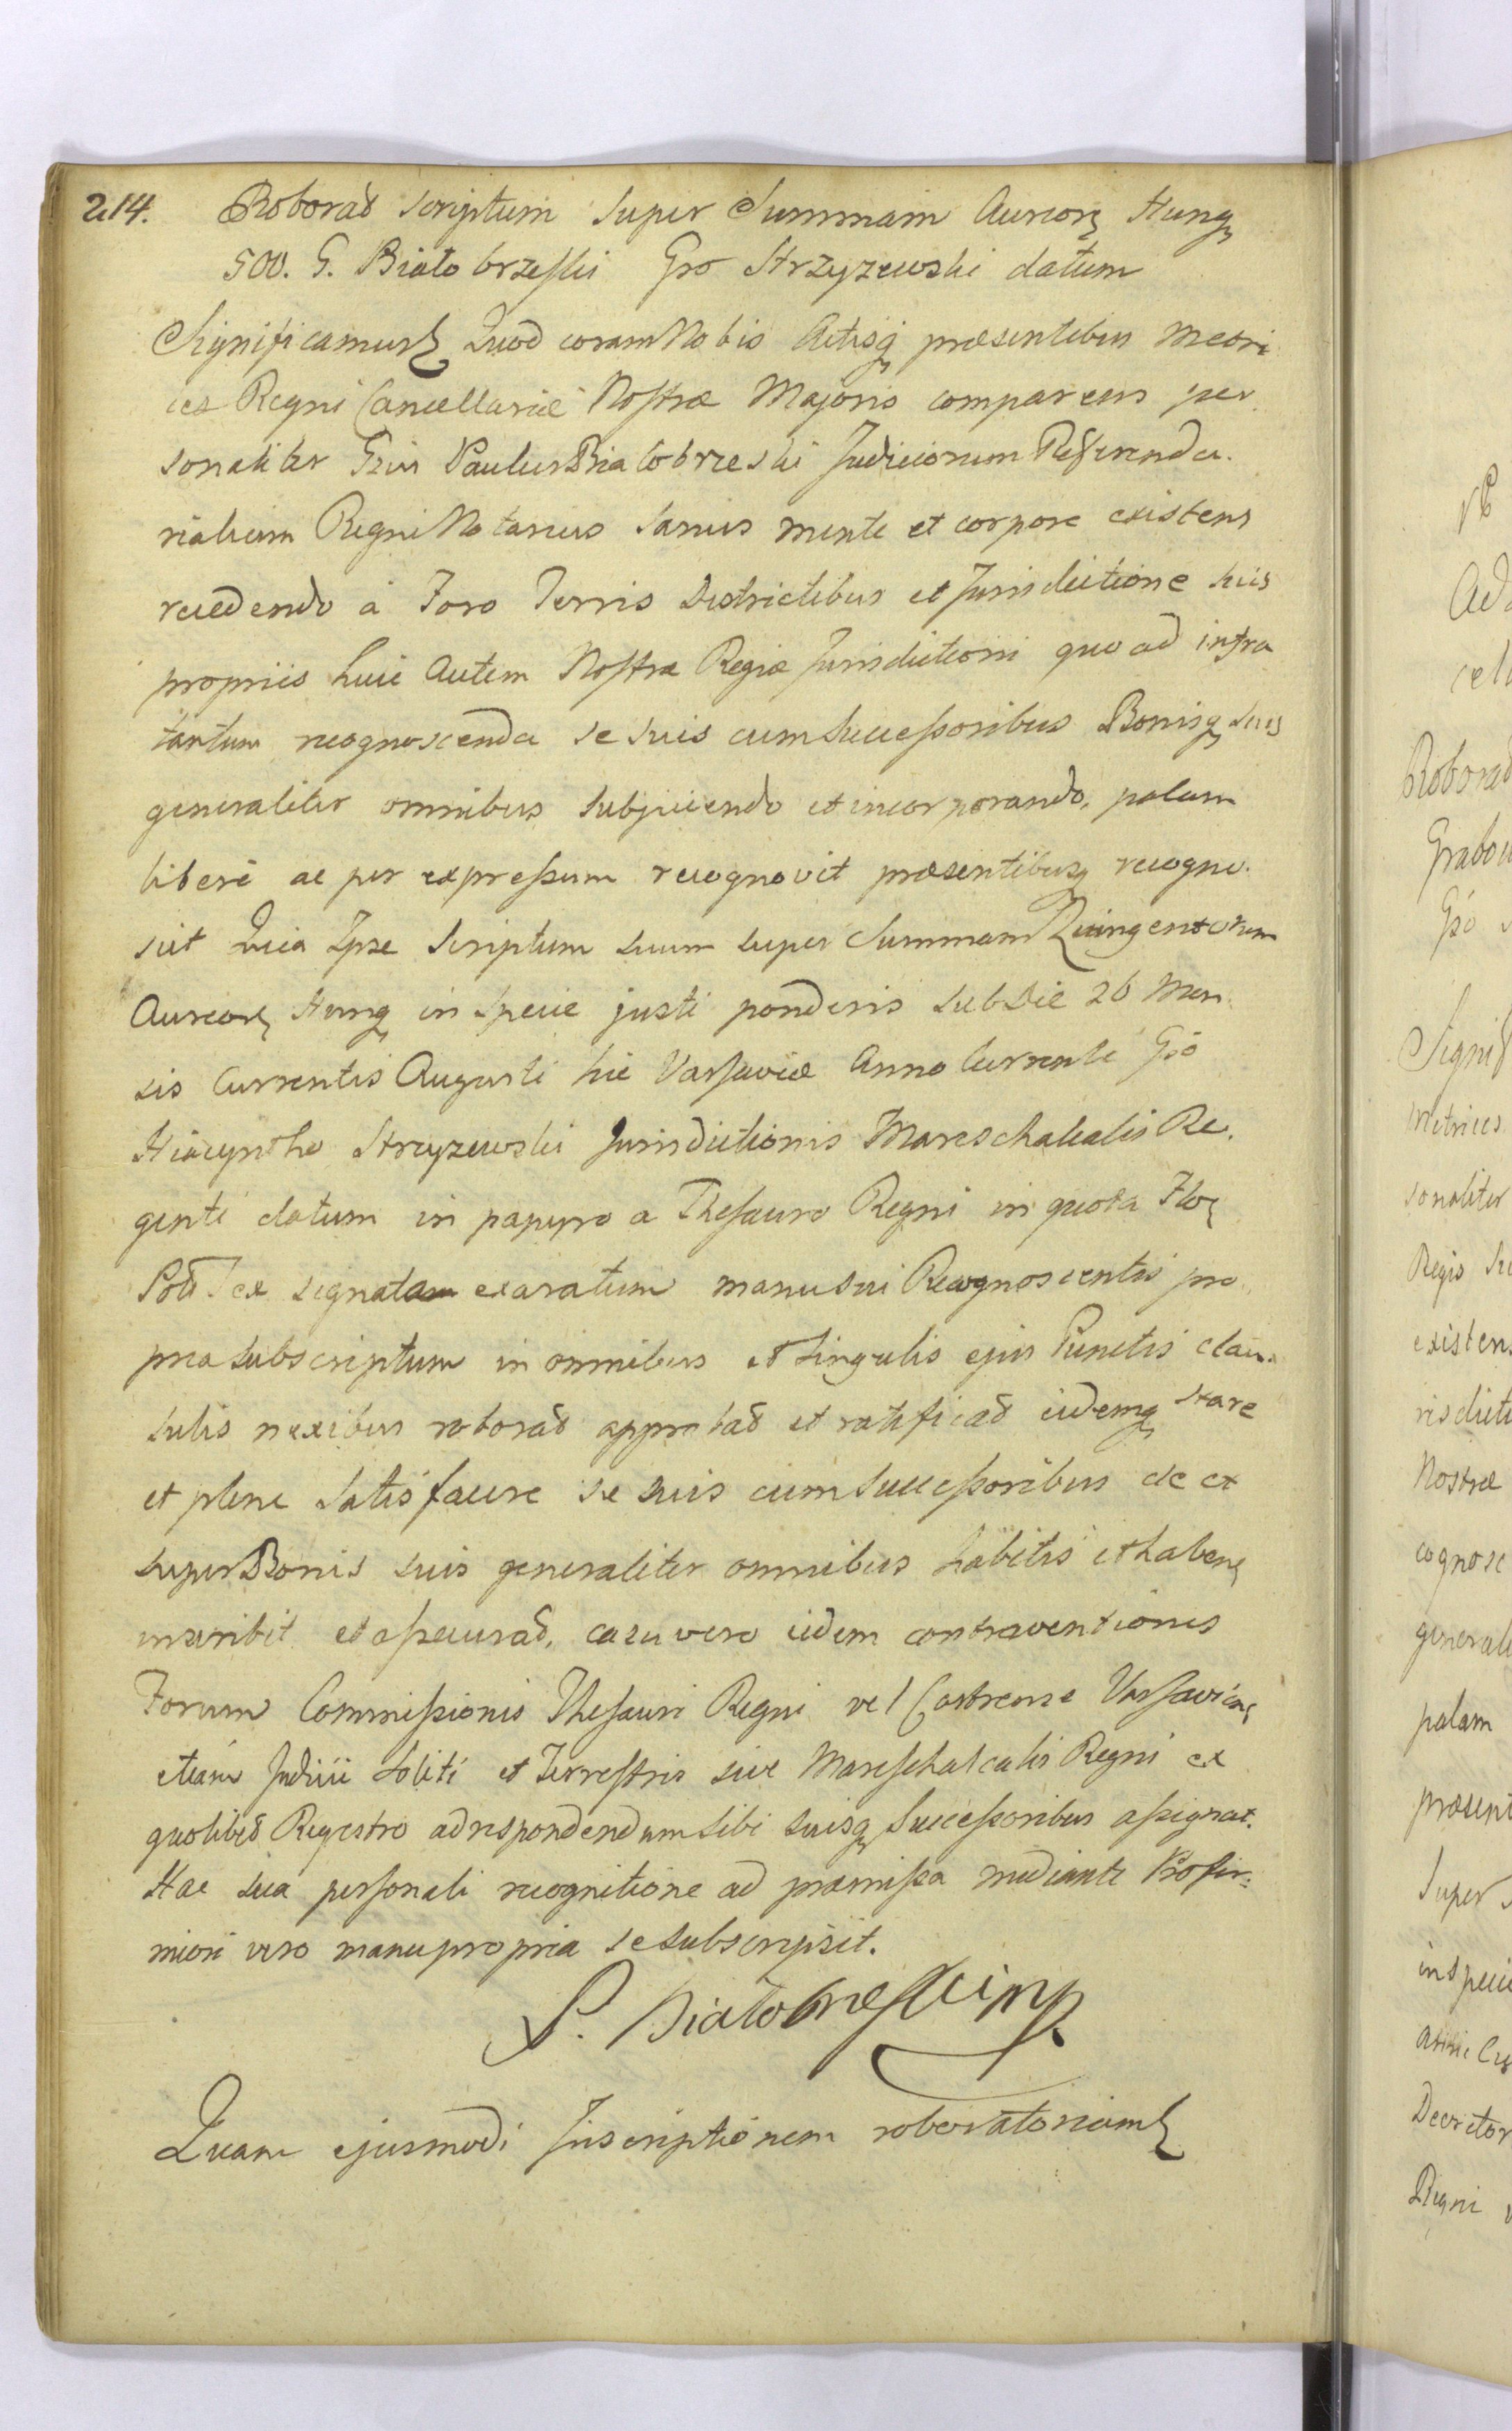 214. Roborat scriptum super Summam Aureorꝫ Hungꝫ
500. G. Białobrzeski Gso Strzyzewski datum
Significamusꝫ Quod coram Nobis Actisqꝫ præsentibus Metri
ces Regni Cancellariæ Nostræ Majoris comparens per
sonaliter Gsus Paulus Białobrzeski Judiciorum Referenda.
rialium Regni Notarius sanus mente et corpore existens
recedendo à Foro Terris Districtibus et Jurisdictione suis
propriis huic autem Nostræ Regiæ Jurisdictioni quo ad infra
tantum recognoscenda se suis cum Successoribus Bonisqꝫ suis
generaliter omnibus subjiciendo et incorporando, palam
liberè ac per expressum recognovit præsentibusqꝫ recogno.
scit Quia Ipse Scriptum suum super Summam Quingentorum
Aureorꝫ Hungꝫ in specie justi ponderis sub Die 26 Men
sis Currentis Augusti hic Varsaviæ Anno Currente Gso
Hiacyntho Strzyzewski Jurisdictionis Mareschalcalis Re.
genti datum in papyro a Thesauro Regni in quota Florꝫ
Poll. ex signatam exaratum manu sui Recognoscentis pro
pria subscriptum in omnibus et singulis ejus Punctis clau.
sulis nexibus roborat approbat et ratificat eidemqꝫ stare
et plene satisfacere se suis cum Successoribus de et
super Bonis suis generaliter omnibus habitis et habenꝫ
inscribit et assecurat, casu vero eidem contraventionis
Forum Commissionis Thesauri Regni vel Castrense Varsavienꝫ
etiam Judicii Soliti et Terrestris sive Mareschalcalis Regni ex
quolibet Regestro ad respondendum sibi suisqꝫ Successoribus assignat.
Hac sua personali recognitione ad præmissa mediante Pro fir.
miori vero manu propria se subscripsit.
P. Białobrzeski mp
Quam ejusmodi Inscriptionem roboratoriamꝫ